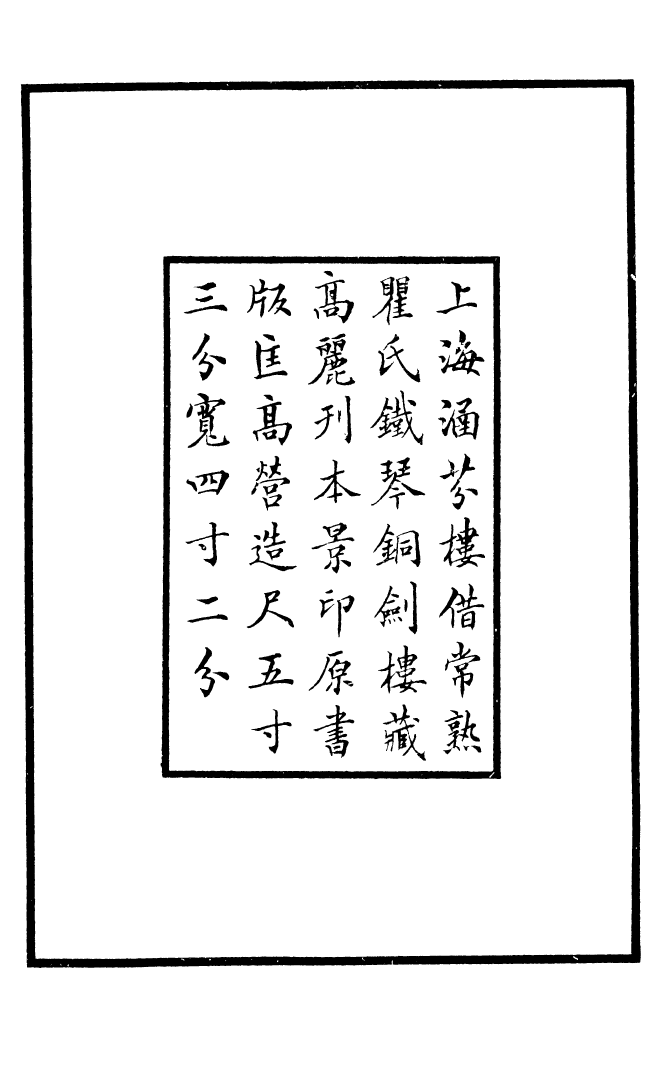 上海涵芬樓借常熟
瞿氏鐵琴銅劍樓藏
高麗刊本景印原書
版匡高營造尺五寸
三分寬四寸二分